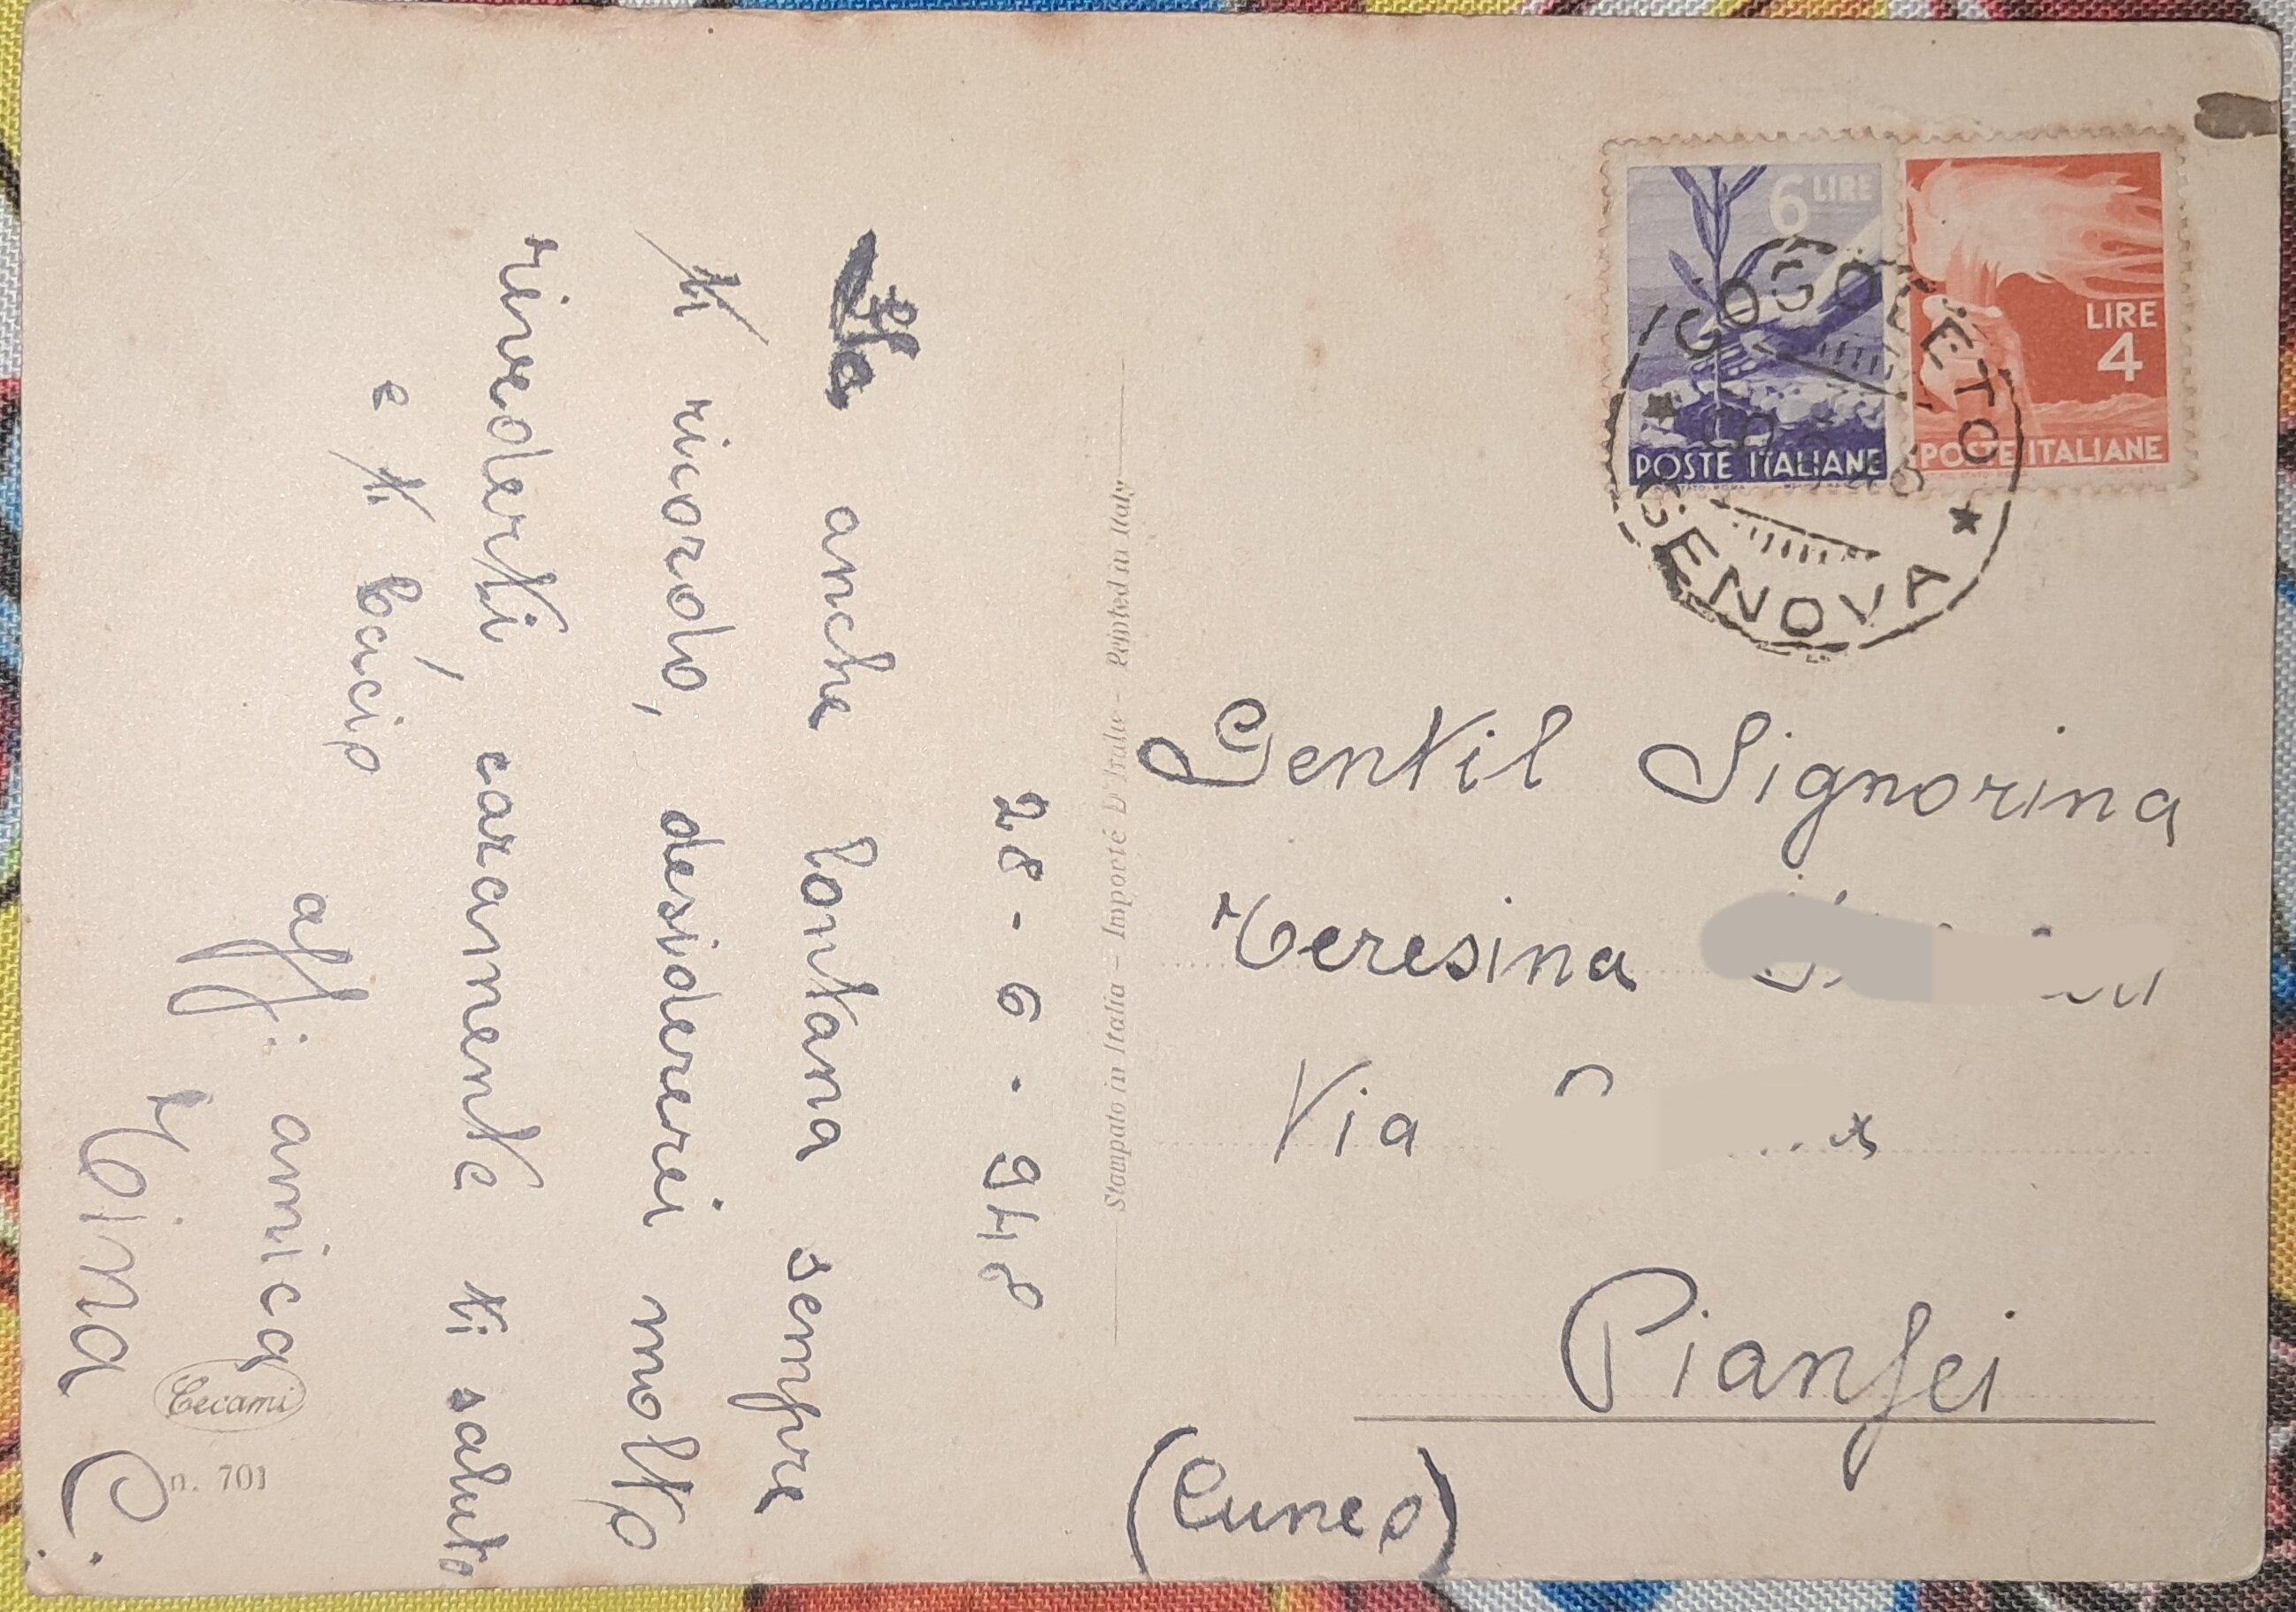 28-6-948
Ma anche lontana sempre
ti ricordo, desidererei molto
rivederti, caramente ti saluto
e ti bacio
aff. amica
Tina C.
Cecami
n. 701
Stampato in Italia - Importé D'Italie - Printed in Italy
6 LIRE
POSTE ITALIANE
LIRE
4
POSTE ITALIANE
COGOLETO
GENOVA
Gentil Signorina
Teresina
Via
Pianfei
(Cuneo)